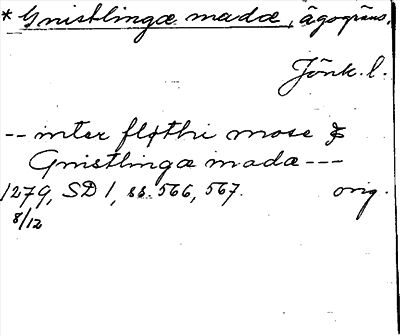 * Gnistlingæ madæ, ägogräns.
Jönk. l.
-- inter fløthi mose &
Gnistlingæ madæ ---
1279, SD 1, ss. 566, 567. orig.
8/12